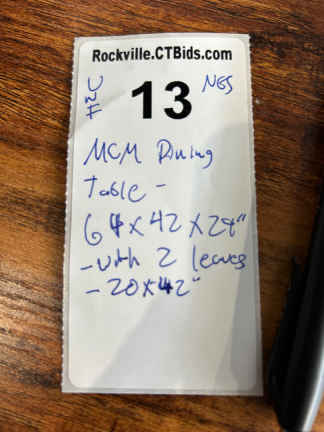 Rockville.CTBids.com
UNF 13 NGS
MCM Dining
Table -
64x42x29"
- with 2 leaves
- 20x42"